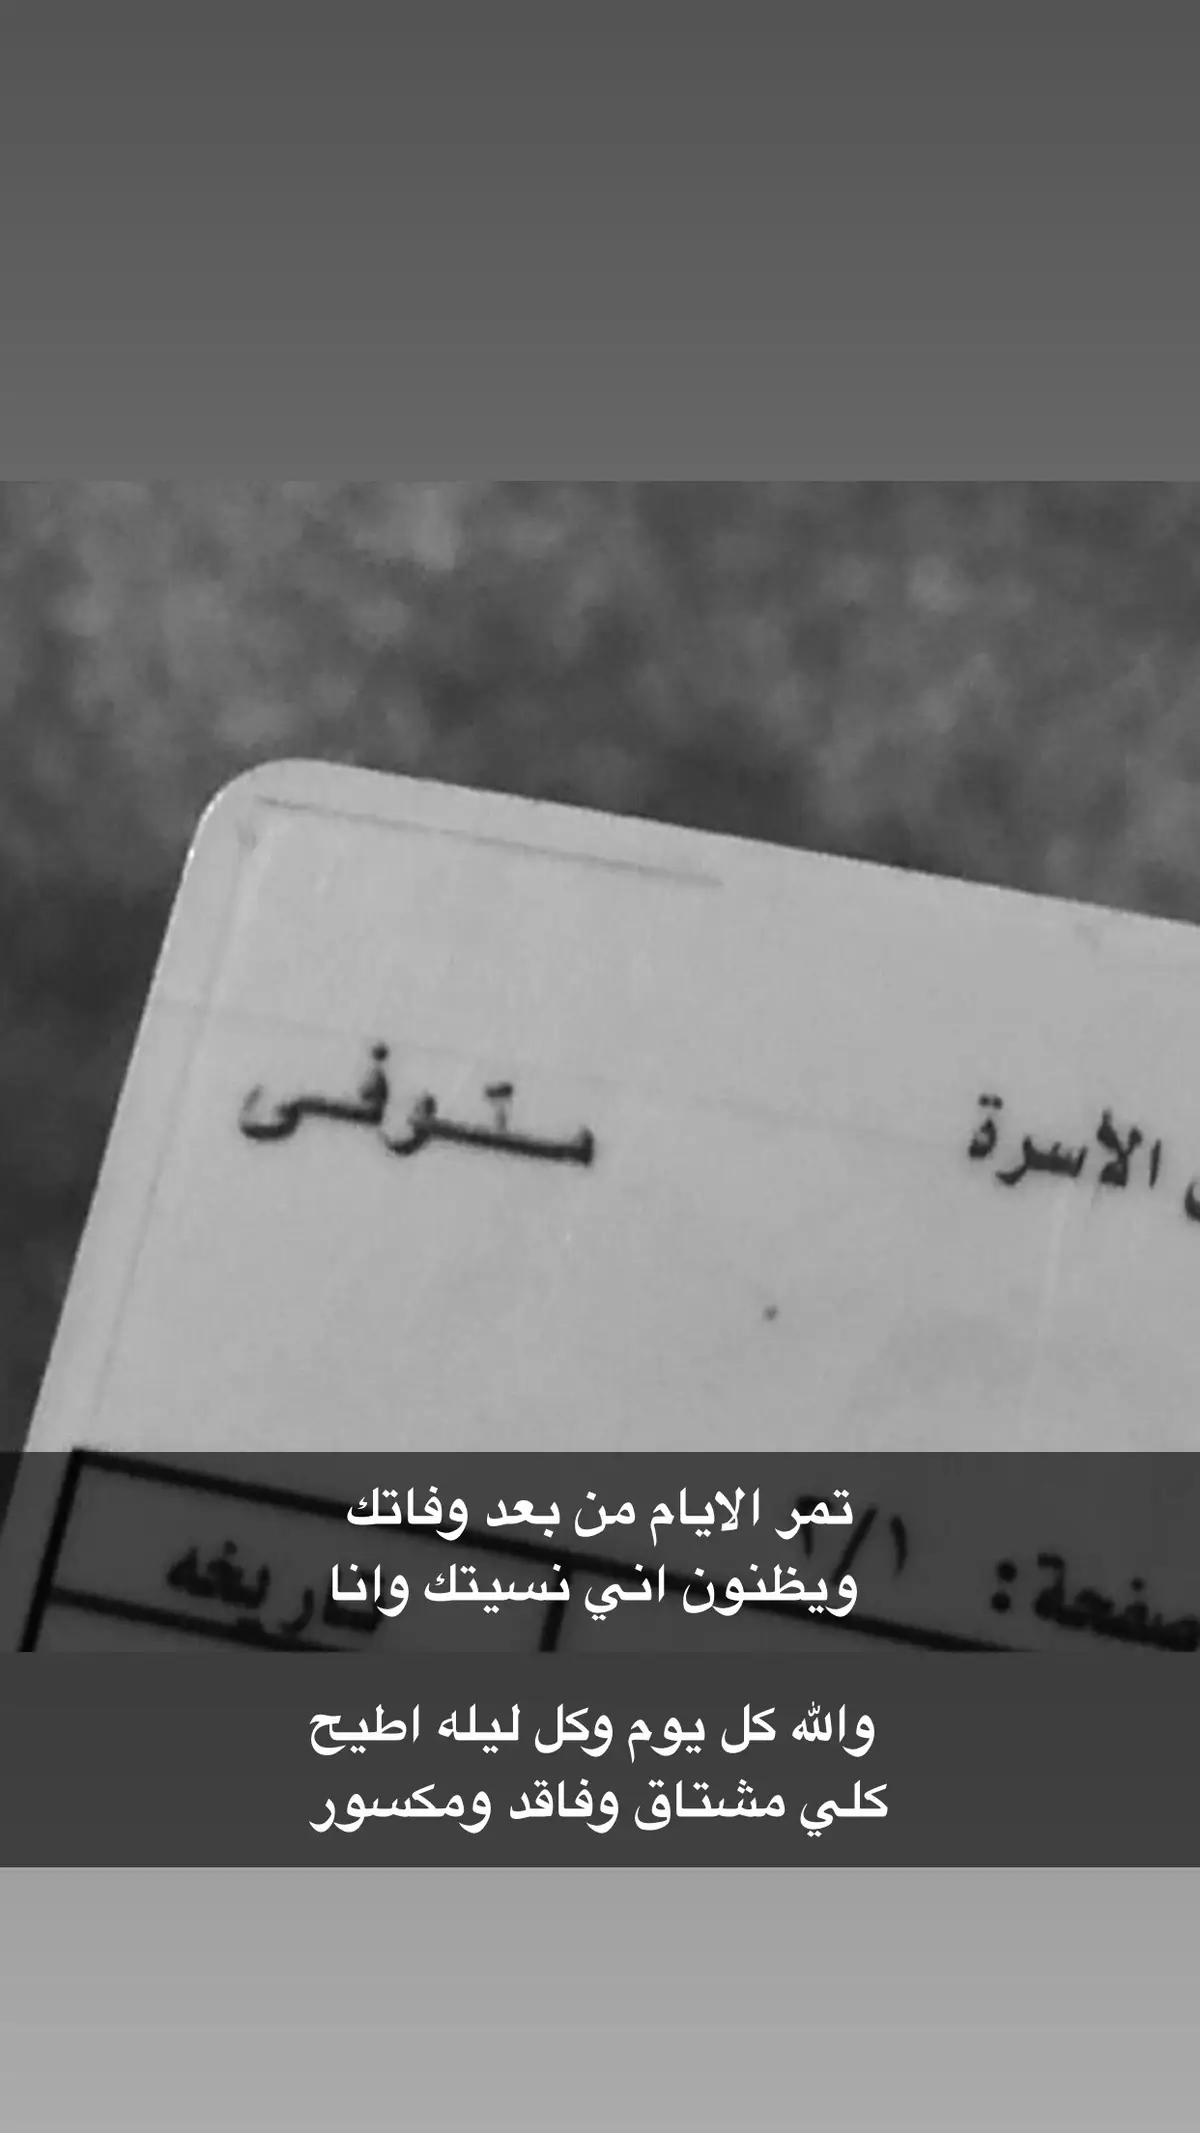 الأسرة
متوفى
تمر الايام من بعد وفاتك
ويظنون اني نسيتك وانا
والله كل يوم وكل ليله اطيح
كلي مشتاق وفاقد ومكسور
صفحة: ١/
تاريخه